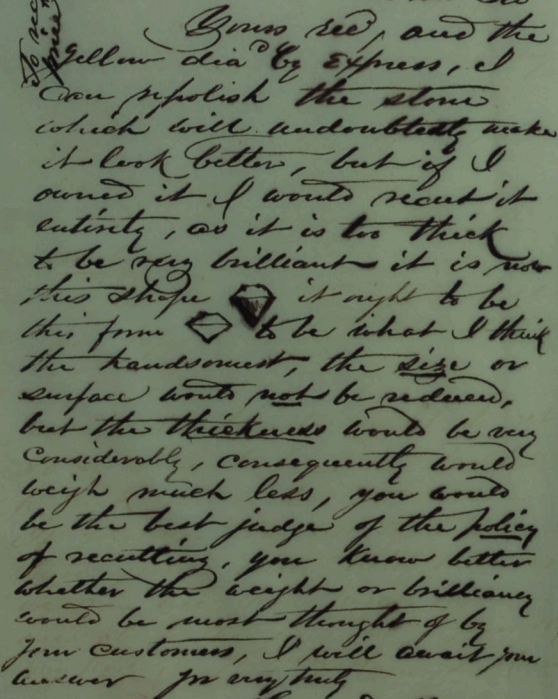 Yours rec'd, and the
Yellow dia'd by Express, I
can repolish the stone
which will undoubtedly make
it look better, but if I
owned it I would recut it
entirely, as it is too thick
to be very brilliant it is now
this shape it ought to be
this form to be what I think
the handsomest, the size or
surface would not be reduced,
but the thickness would be very
considerably, consequently would
weigh much less, you would
be the best judge of the policy
of recutting, you know better
whether the weight or brilliancy
would be most thought of by
your customers, I will await your
answer yrs very truly